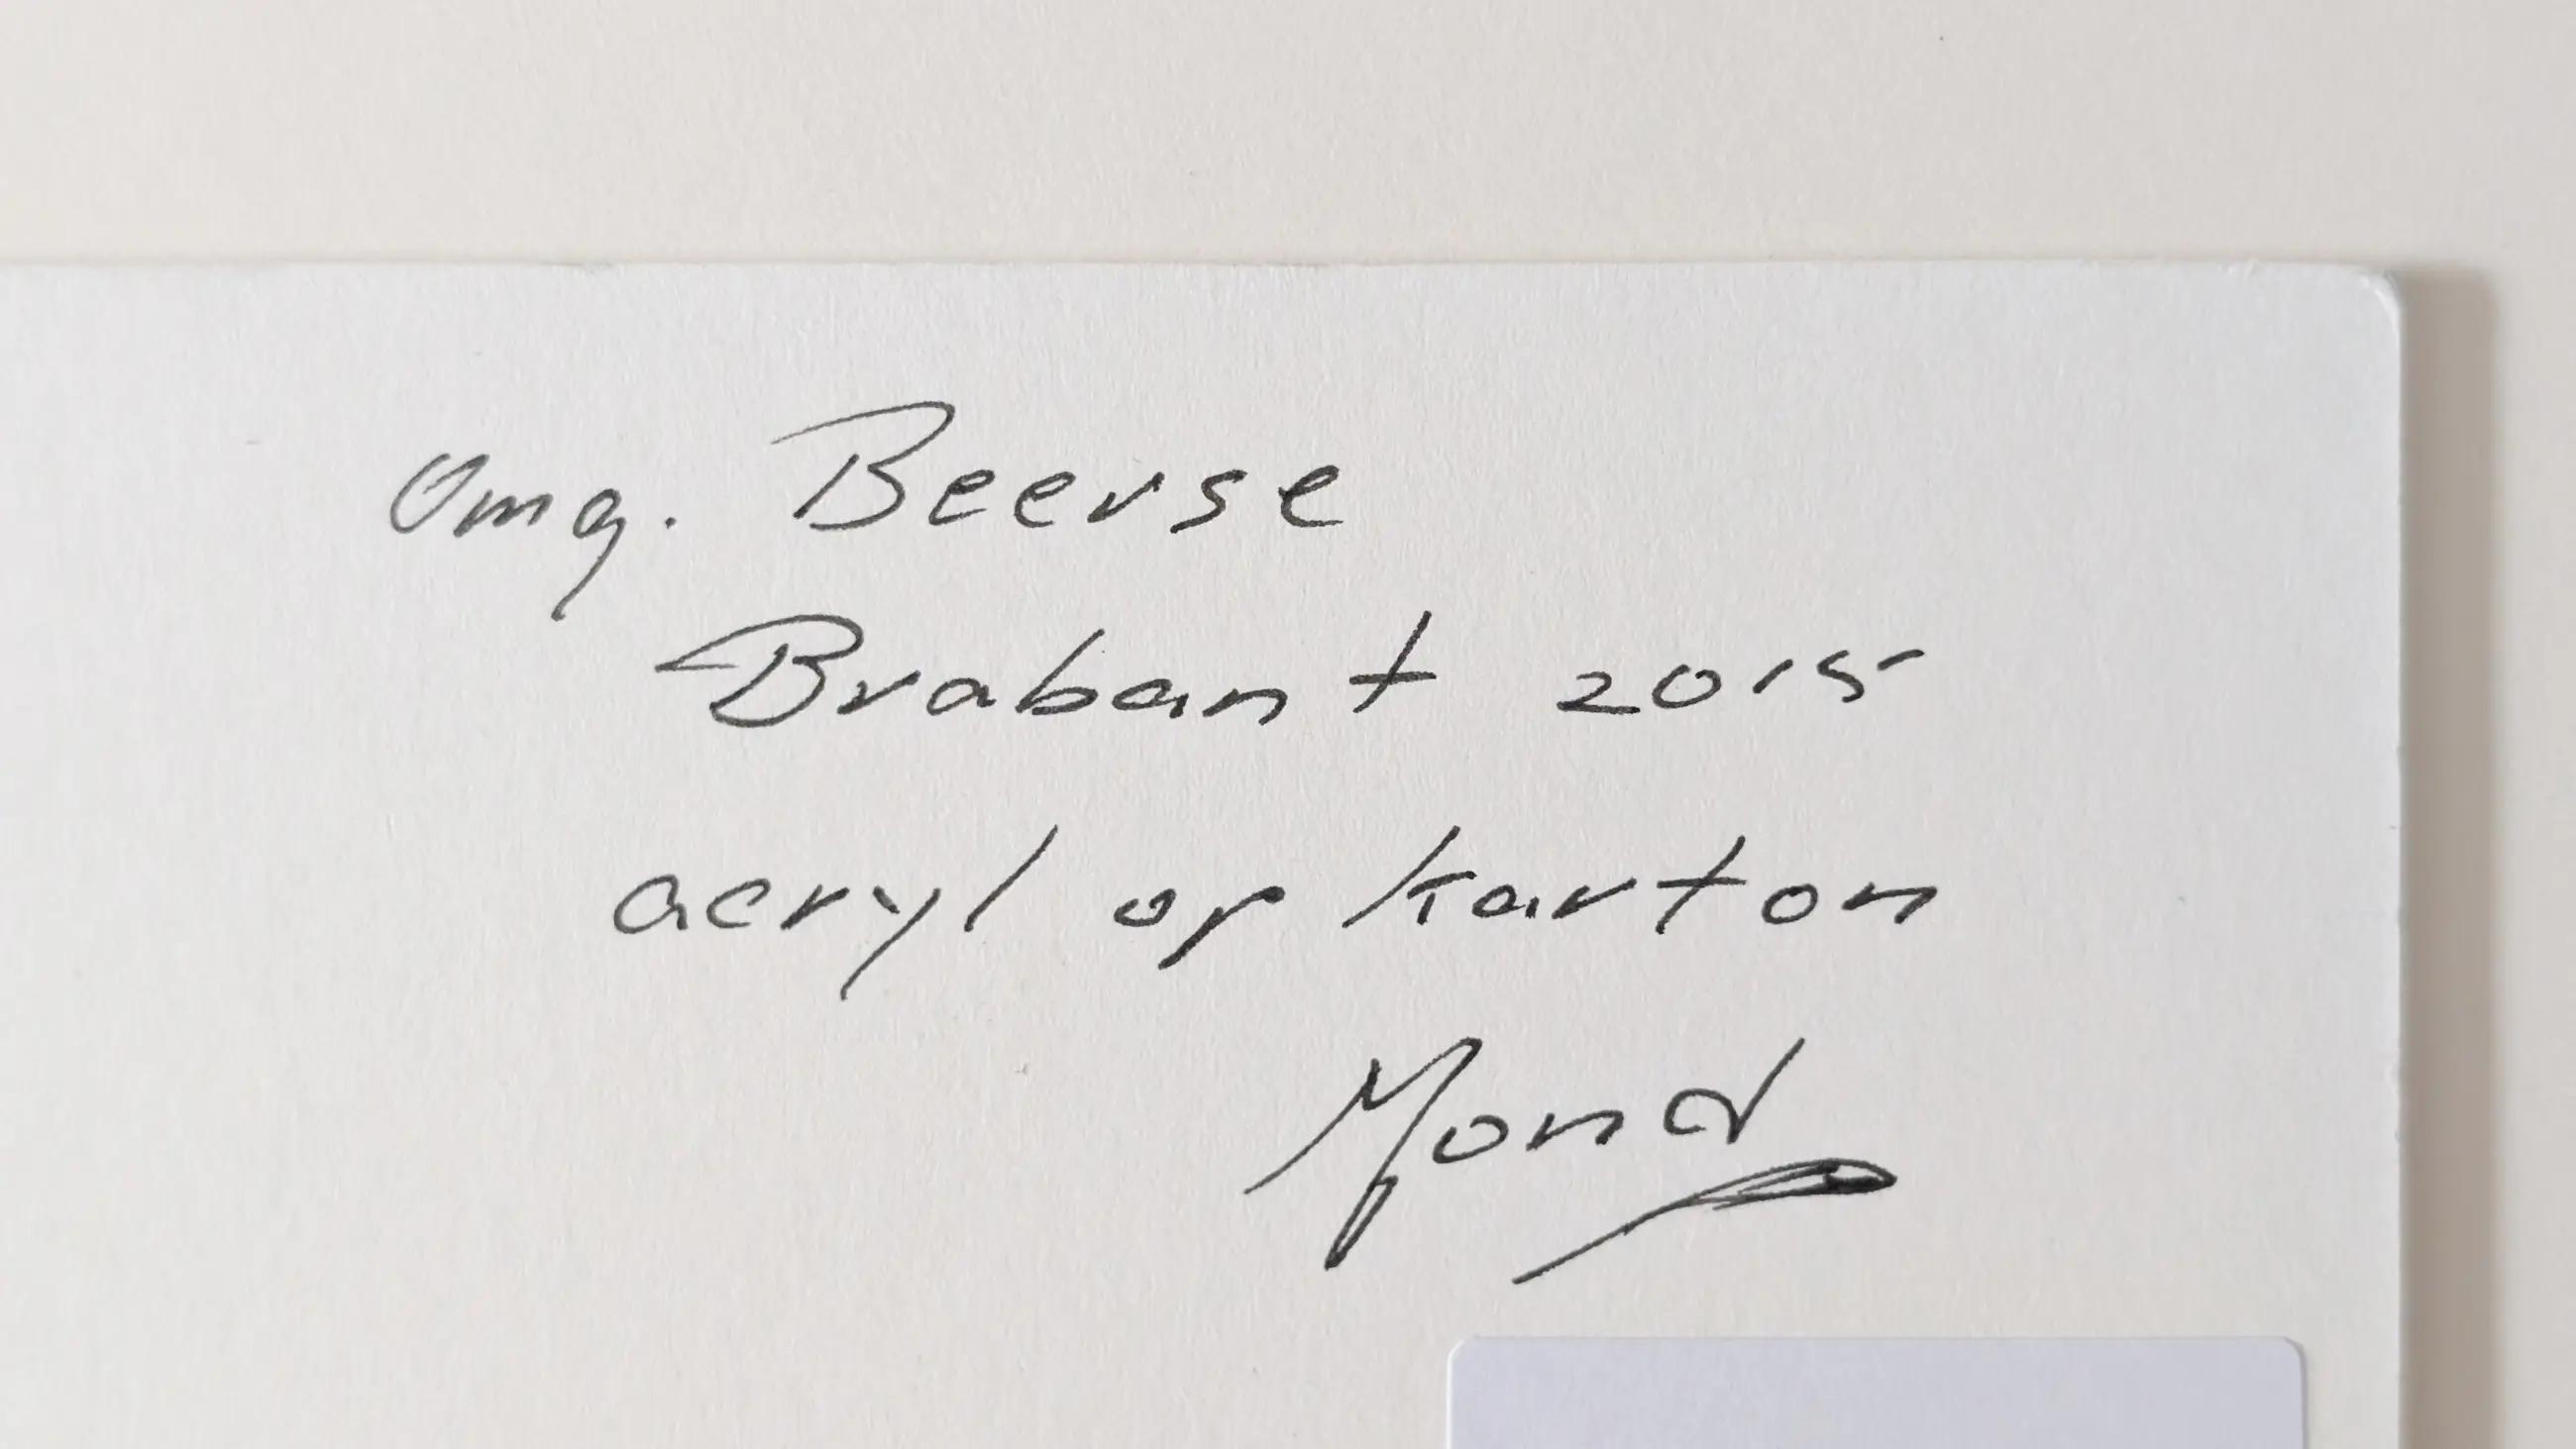 omg. Beerse
Brabant 2015
acryl op karton
Mond